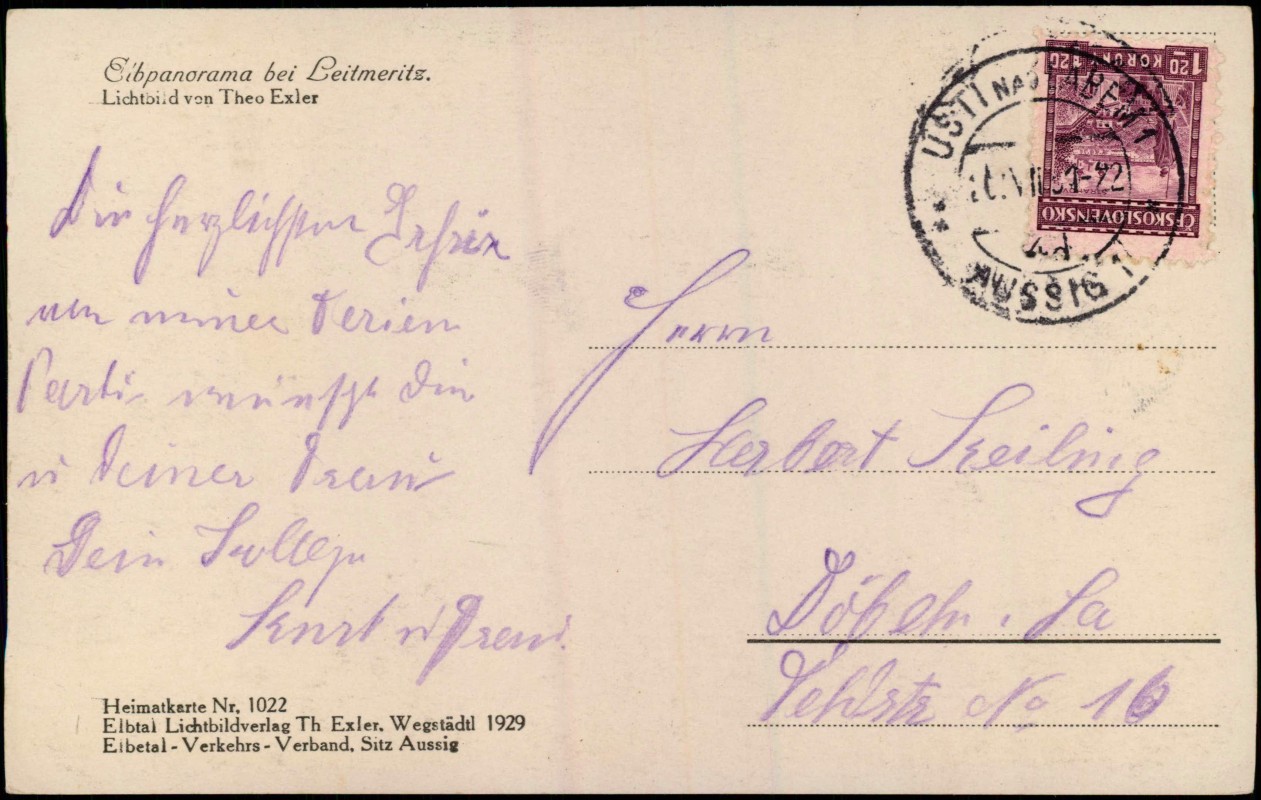 Elbpanorama bei Leitmeritz.
Lichtbild von Theo Exler
1 20 KORUN 1 20
ČESKOSLOVENSKO
USTI NAD LABEM 1
VII 31-22
AUSSIG 1
Die herzlichsten Grüße
von meiner Ferien
Partie wünscht Dir
u Deiner Frau
Dein Kollege
Kurt u Frau.
Herrn
Herbert Keiling
Döbeln. Sa
No 16
Heimatkarte Nr. 1022
Elbtal Lichtbildverlag Th Exler, Wegstädtl 1929
Elbetal-Verkehrs-Verband, Sitz Aussig